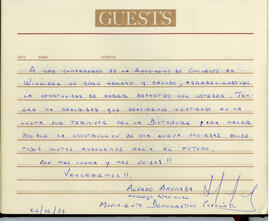 GUESTS
DATE NAME ADDRESS
A LOS COMPAÑEROS DE LA ASOCIACION DE CHILENOS DE
WINNIPEG UN GRAN ABRAZO Y SALUDO, AGRADECIENDOLES
LA OPORTUNIDAD DE HABER DEPARTIDO CON USTEDES. TEN-
GAN LA SEGURIDAD QUE SEGUIREMOS INSISTIENDO EN LA
LUCHA POR TERMINAR CON LA DICTADURA PARA HACER
POSIBLE LA CONSTRUCCION DE UNA NUEVA SOCIEDAD DONDE
TODOS JUNTOS AVANCEMOS HACIA EL FUTURO.
POR MAS LUCHA Y MAS UNIDAD!!
VENCEREMOS!!
ALVARO AHUMADA
CONSEJO NACIONAL
MOVIMIENTO DEMOCRATICO POPULAR